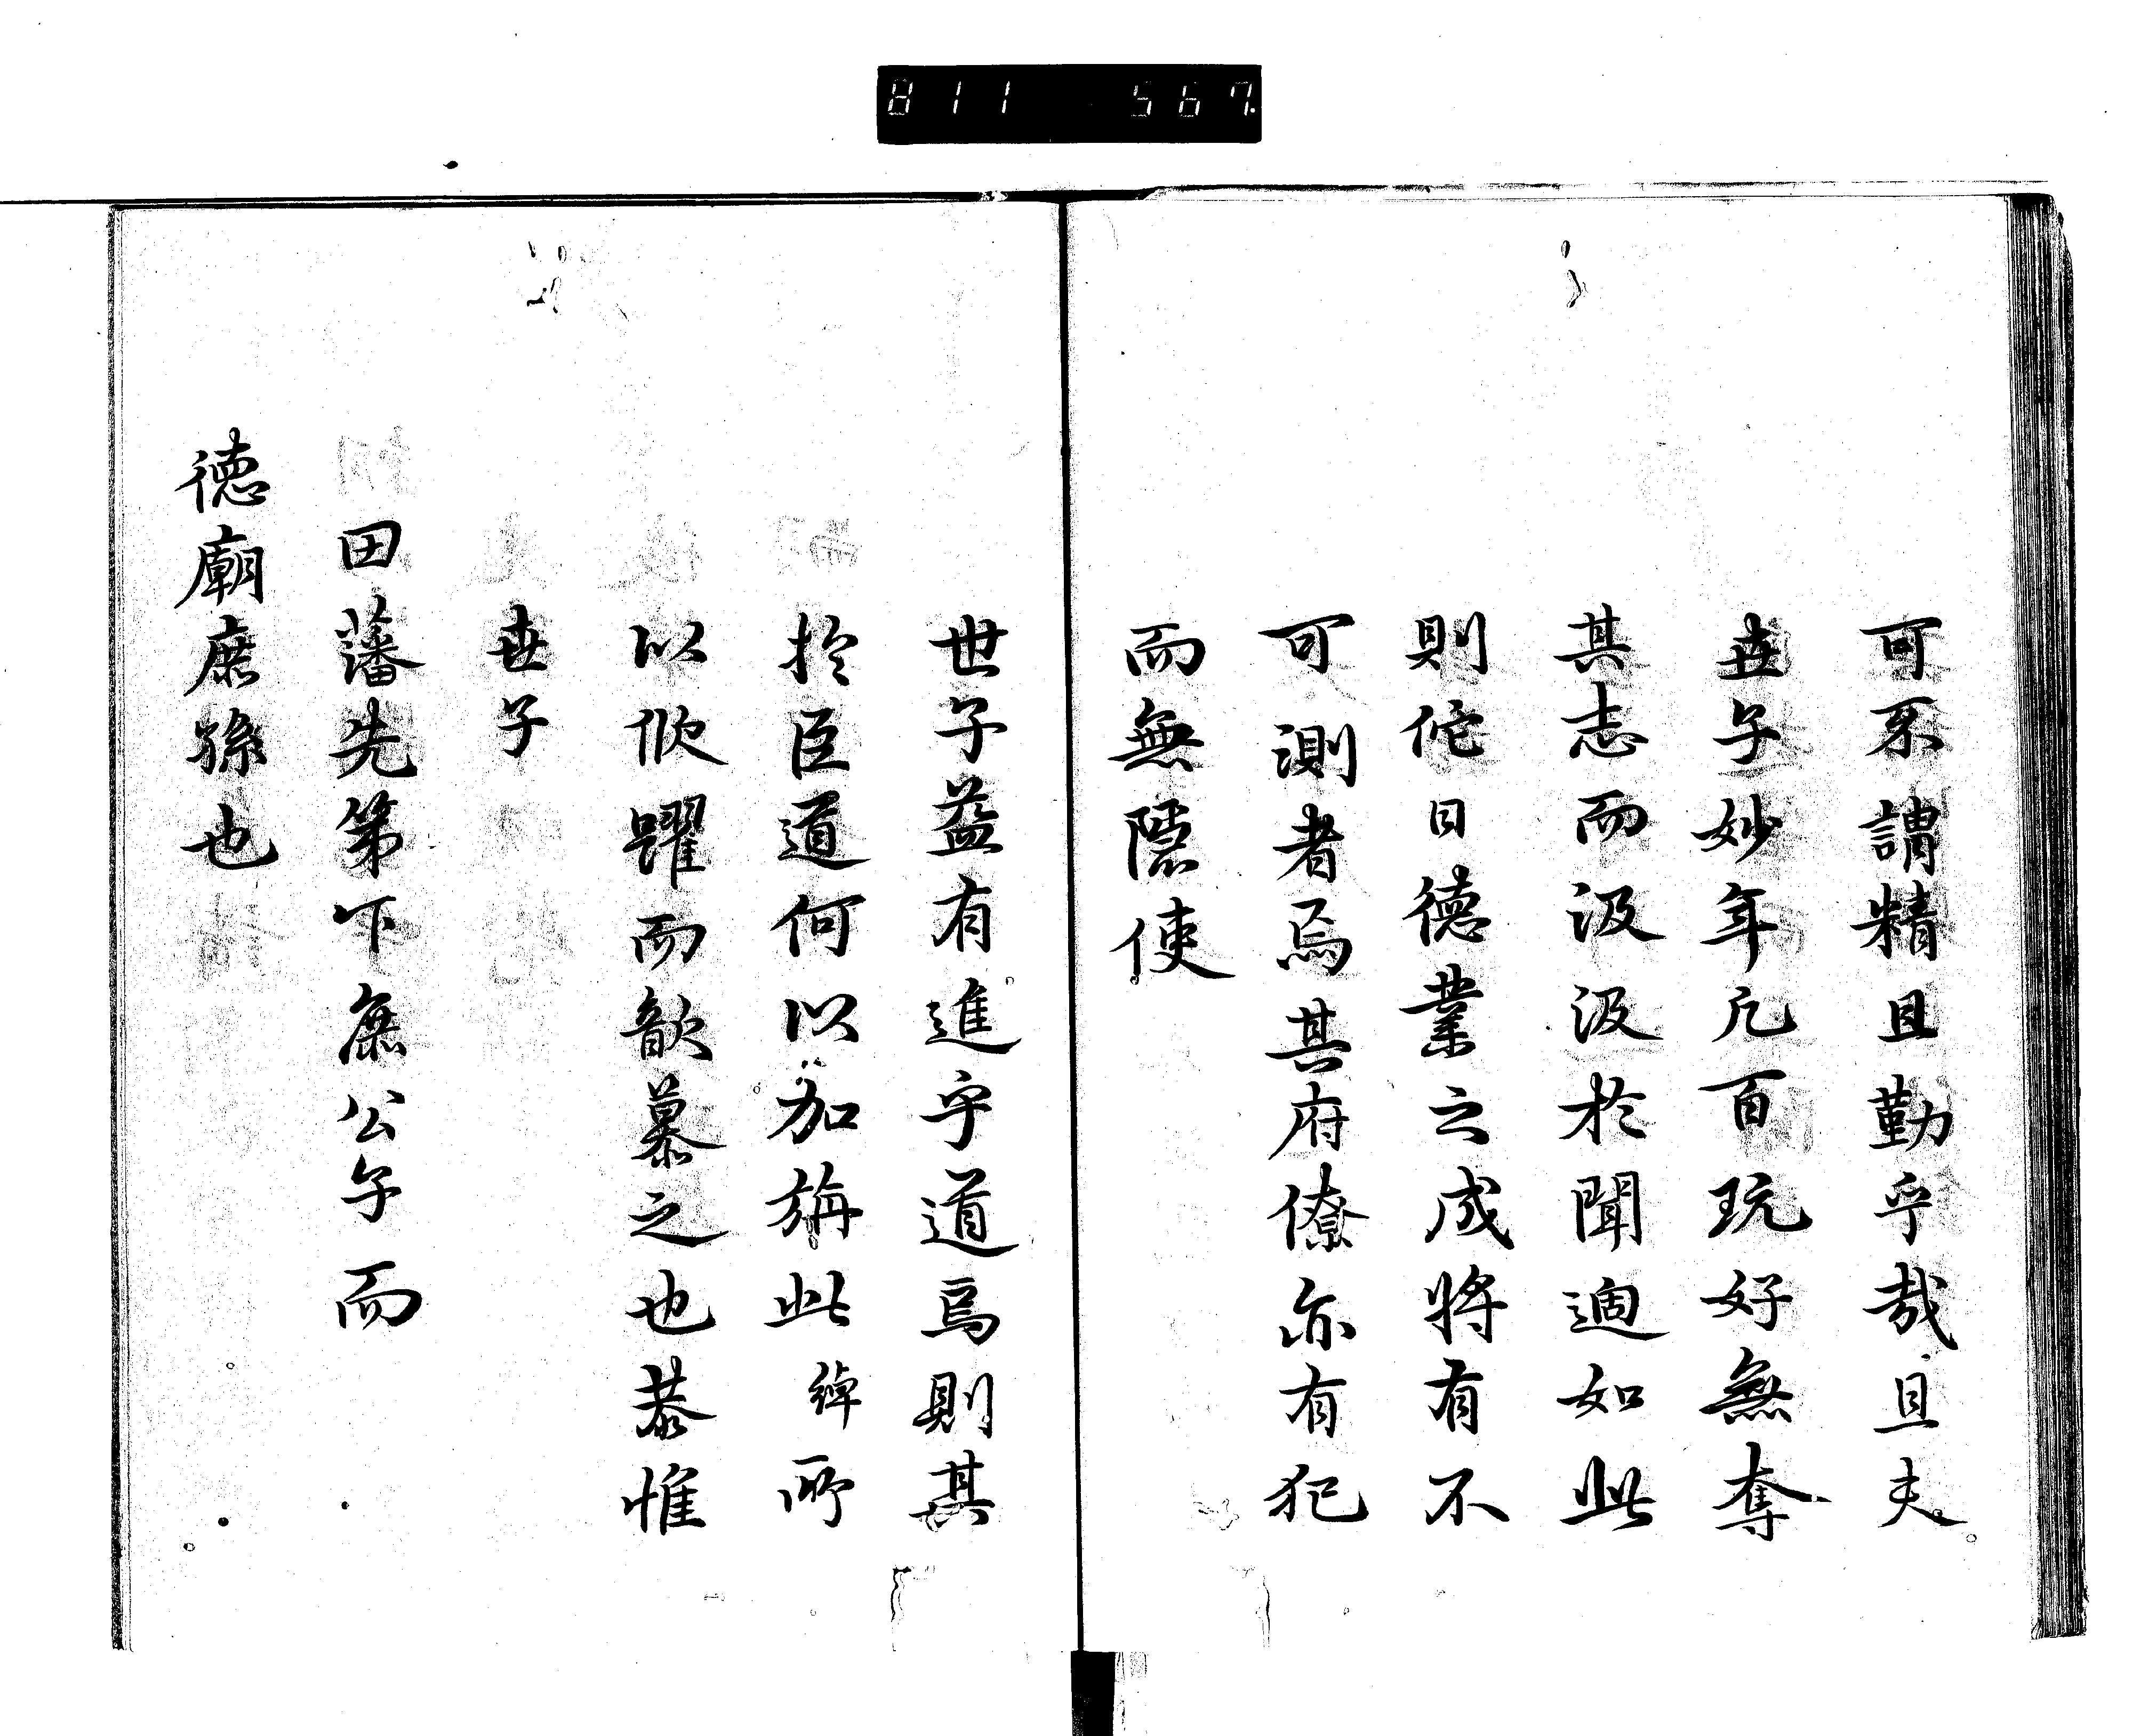 811 567.
可不謂精且勤乎哉且夫
世子妙年凡百玩好無奪
其志而汲汲於聞迺如此
則佗日德業之成將有不
可測者焉其府僚亦有犯
而無隱使
世子益有進乎道焉則其
於臣道何以加旃此綽所
以欣躍而歆慕之也恭惟
世子
田藩先第下庶公子而
德廟庶孫也